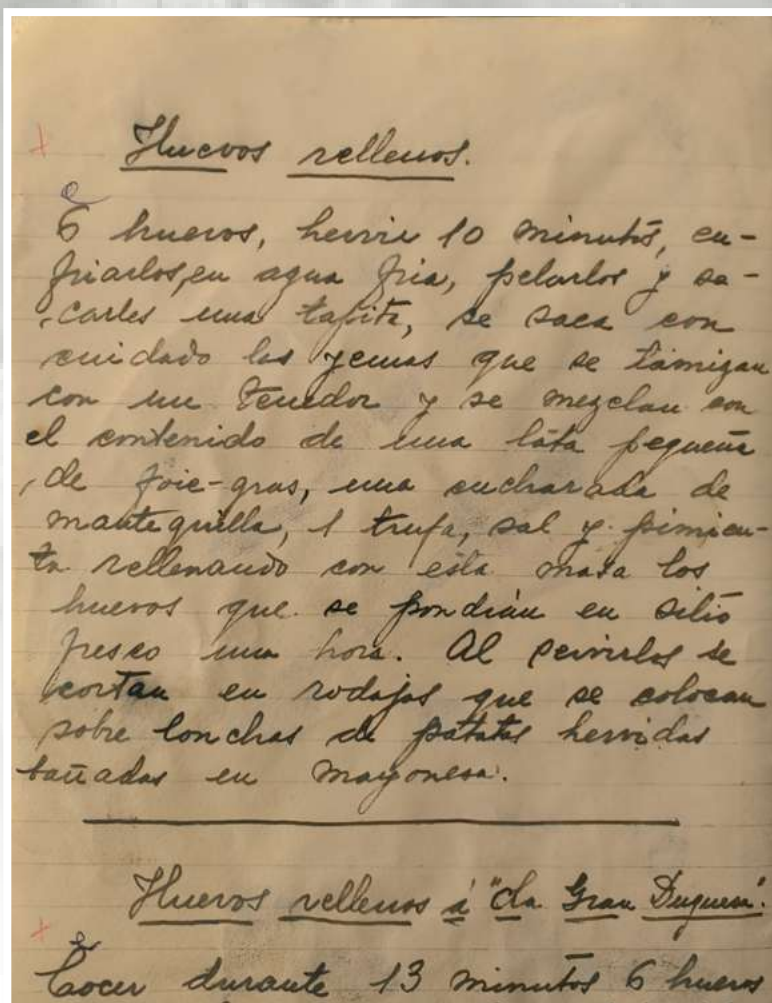 Huevos rellenos.
6 huevos, hervir 10 minutos, en-
friarlos, en agua fria, pelarlos y sa-
carles una tapita, se saca con
cuidado las yemas que se tamizan
con un tenedor y se mezclan con
el contenido de una lata pequeña
de foie-gras, una cucharada de
mantequilla, 1 trufa, sal y pimien-
ta rellenando con esta masa los
huevos que se pondrán en sitio
fresco una hora. Al servirlos se
cortan en rodajas que se colocan
sobre lonchas de patatas hervidas
bañadas en mayonesa.
Huevos rellenos á "la Gran Duquesa".
Cocer durante 13 minutos 6 huevos